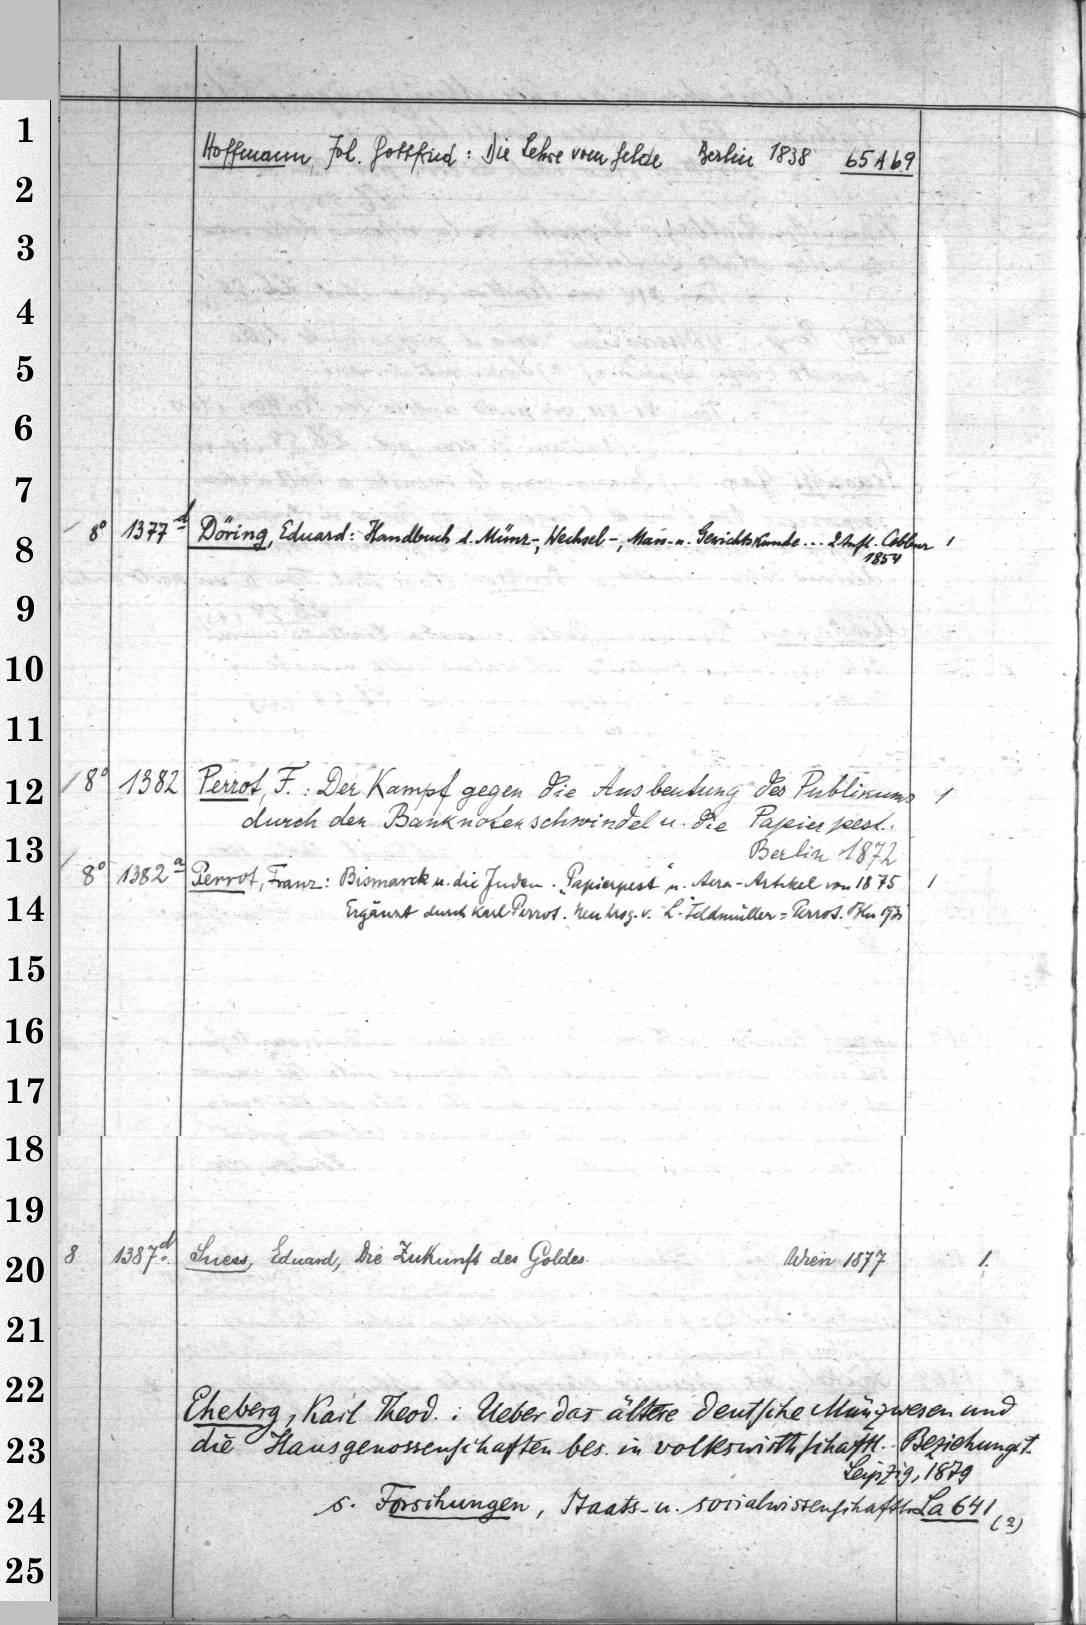 1
Hoffmann, Joh. Gottfried: Die Lehre vom Gelde Berlin 1838 65 A 69
2
3
4
5
6
7
8° 1377 d Döring, Eduard: Handbuch d. Münz-, Wechsel-, Mass- u. Gewichtskunde... 2 Aufl. 1
8
1854
9
10
11
8° 1382 Perrot, F.: Der Kampf gegen die Ausbeutung des Publikums 1
12
durch den Banknotenschwindel u. die Papierpest.
13
Berlin 1872
8° 1382 a Perrot, Franz: Bismarck u. die Juden. "Papierpest" u. Aera-Artikel von 1875 1
14
Ergänzt durch Karl Perrot. Neu hrsg. v. L. Feldmüller=Perrot.
15
16
17
18
19
8 1387 d. Suess, Eduard, Die Zukunft des Goldes. Wien 1877 1.
20
21
22
Eheberg, Karl Theod.: Ueber das ältere deutsche Münzwesen und
23
die Hausgenossenschaften bes. in volkswirthschaftl. Beziehung.
Leipzig, 1879
24
s. Forschungen, Staats- u. socialwissenschaftl. La 641 (2)
25